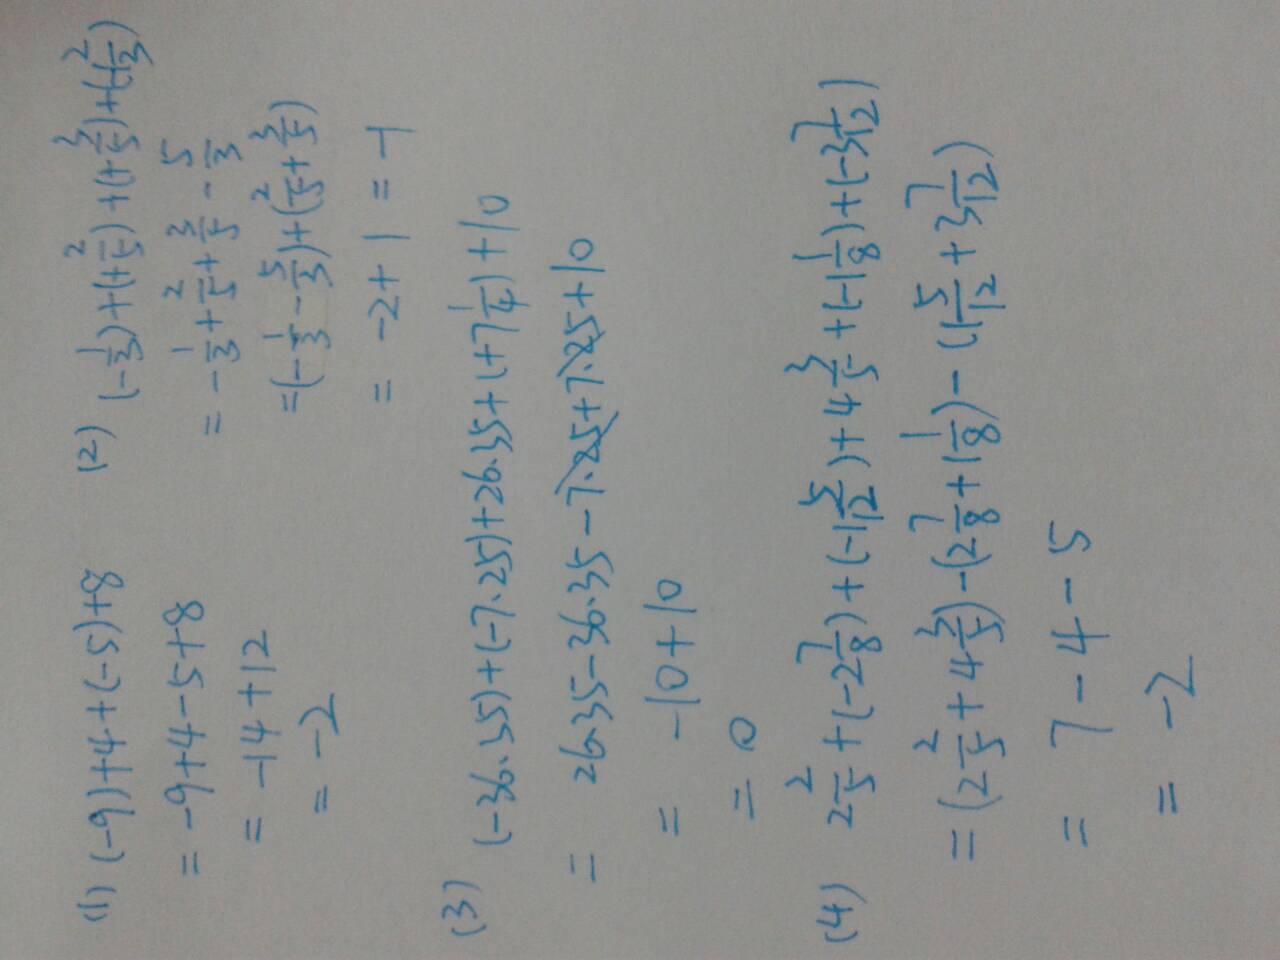 (1) (-9)+4+(-5)+8
= -9+4-5+8
= -14+12
= -2
(2) (-1/3)+(+2/5)+(+3/5)+(-1 2/3)
= -1/3+2/5+3/5-5/3
=(-1/3-5/3)+(2/5+3/5)
= -2+1=-1
(3) (-36.35)+(-7.25)+26.35+(+7 1/4)+10
= 26.35-36.35-7.25+7.25+10
= -10+10
= 0
(4) 2 2/5+(-2 7/8)+(-1 5/12)+4 3/5+(-1 1/8)+(-3 7/12)
=(2 2/5+4 3/5)-(2 7/8+1 1/8)-(1 5/12+3 7/12)
= 7-4-5
= -2